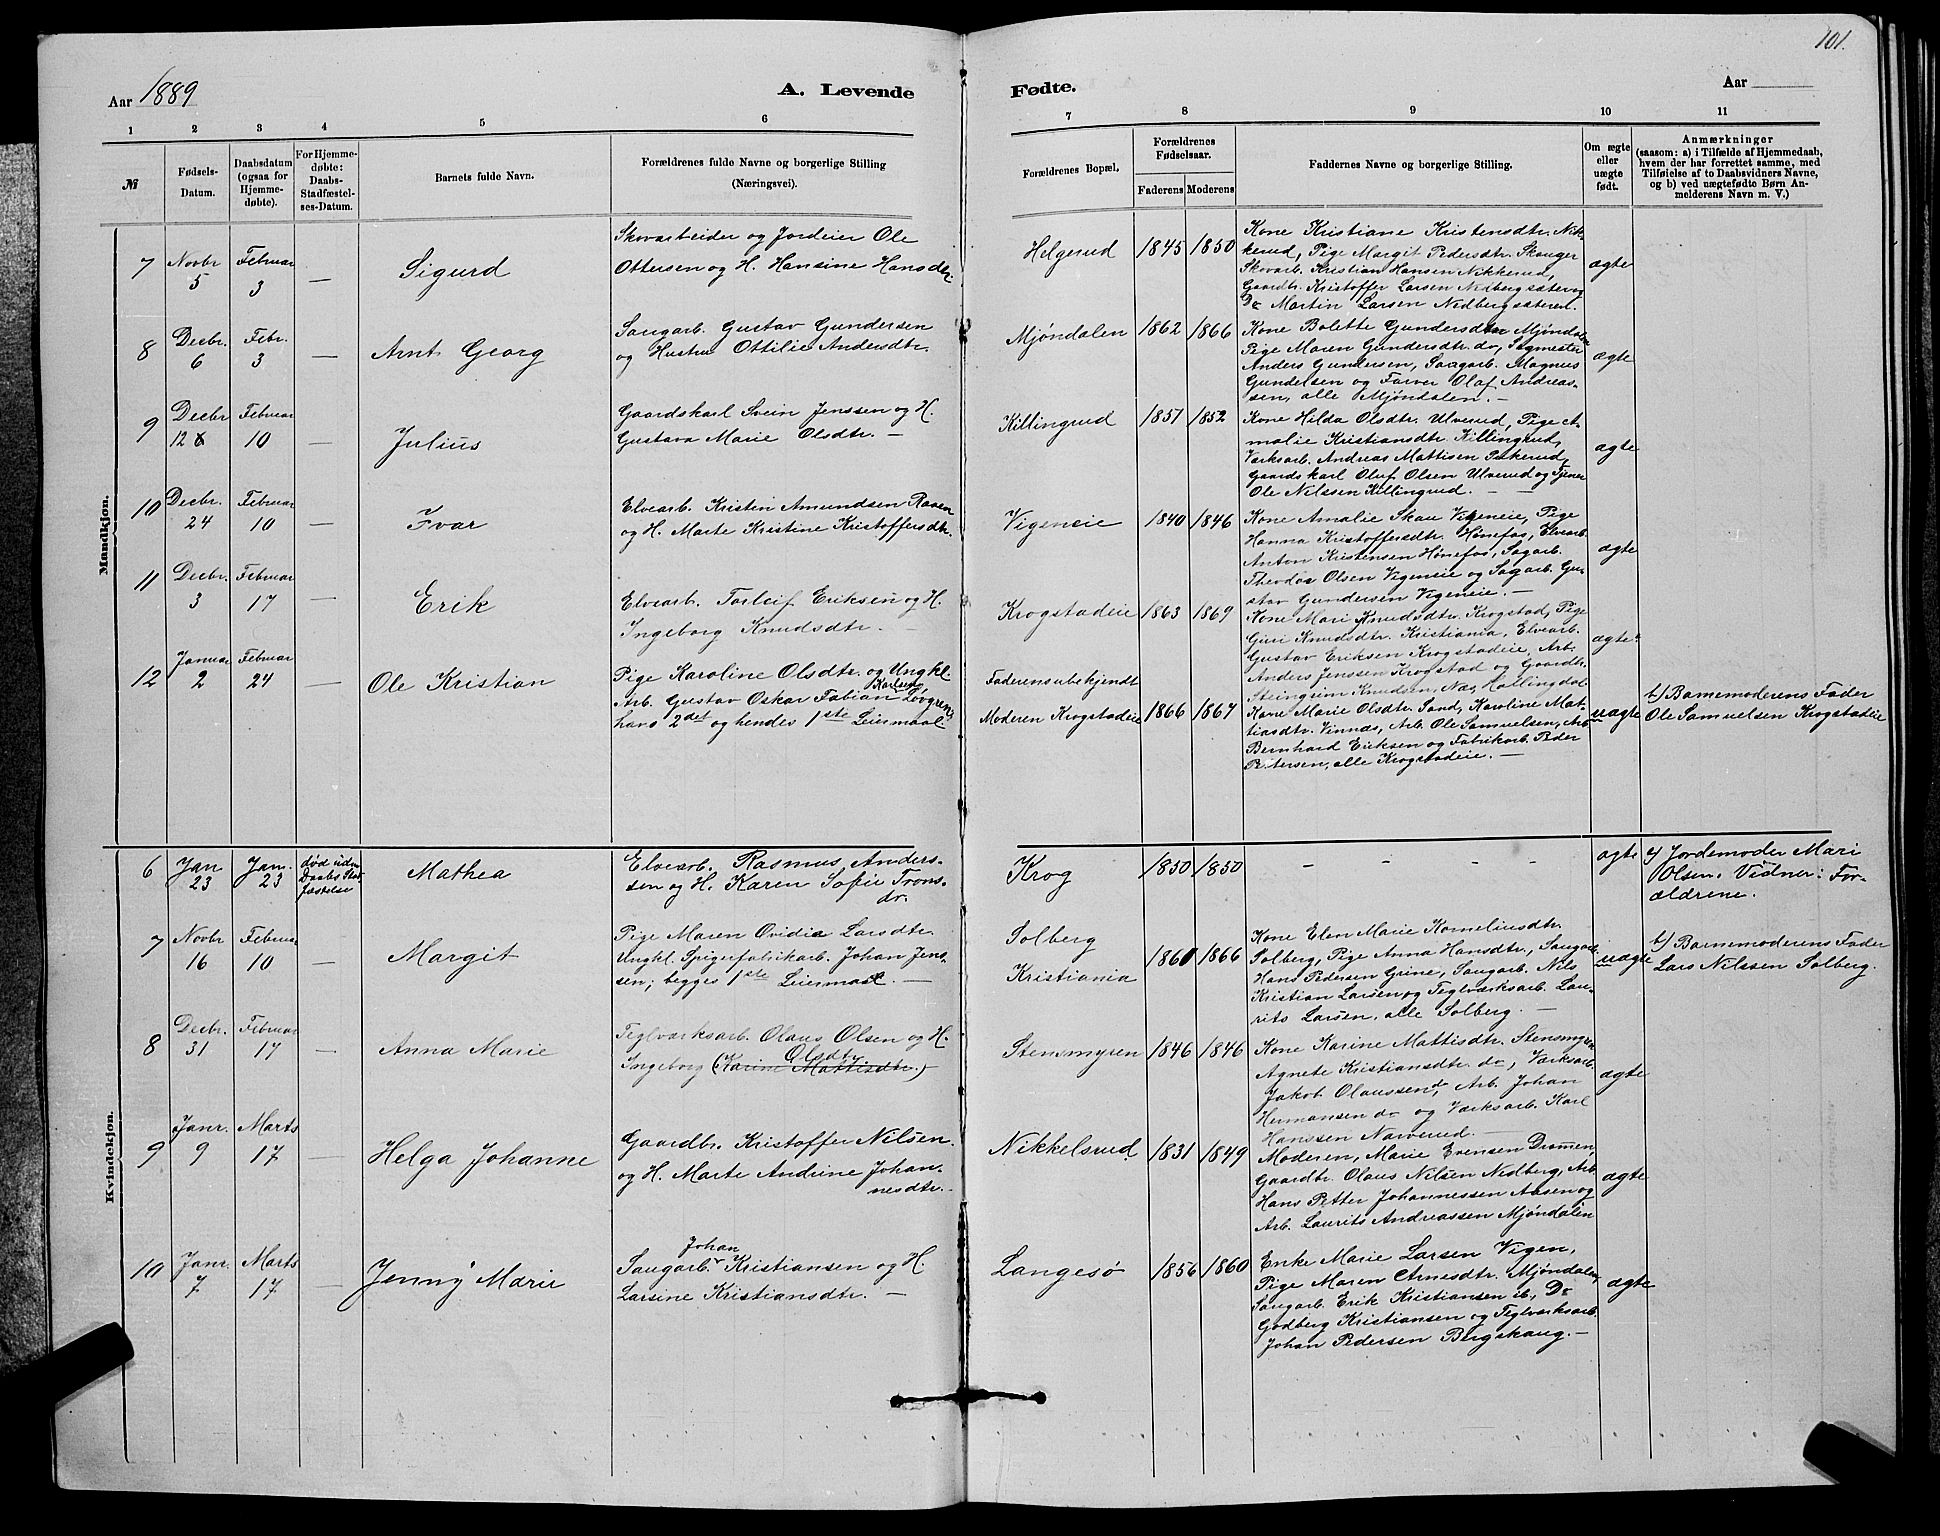 101.
Aar 1889
A. Levende
Fødte.
Aar
1 2 3 4 5 6 7 8 9 10 11
№
Fødsels-
Datum.
Daabsdatum
(ogsaa for
Hjemme-
døbte).
For Hjemme-
døbte:
Daabs-
Stadfæstel-
ses-Datum.
Barnets fulde Navn.
Forældrenes fulde Navne og borgerlige Stilling
(Næringsvei).
Forældrenes Bopæl,
Forældrenes
Fødselsaar.
Faderens Moderens
Faddernes Navne og borgerlige Stilling.
Om ægte
eller
uægte
født.
Anmærkninger
(saasom: a) i Tilfælde af Hjemmedaab,
hvem der har forrettet samme, med
Tilføielse af to Daabsvidners Navne,
og b) ved uægtefødte Børn An-
melderens Navn m. V.)
Mandkjøn.
7
Novbr
5
Februar
3
—
Sigurd
Skovarbeider og Jordeier Ole
Ottersen og H. Hansine Hansdtr.
Helgerud
1845 1850
Kone Kristiane Kristensdtr. Nik-
kerud, Pige Margit Pedersdtr. Skauger
Skovarb. Kristian Hansen Nikkerud,
Gaardbr. Kristoffer Larsen Nedbergsæter og
Do Martin Larsen Nedbergsæteren.
ægte
8
Decbr.
6
Febr.
3
—
Arnt Georg
Saugarb. Gustav Gundersen
og Hustru Ottilie Andersdtr.
Mjøndalen
1862 1866
Kone Bolette Gundersdtr Mjøndalen
Pige Maren Gundersdtr. do, Sagmester
Anders Gundersen, Saugarb. Magnus
Gundersen og Farver Olaf Andreas-
sen, alle Mjøndalen. —
ægte
9
Decbr
12
Februar
10
—
Julius
Gaardskarl Svein Jenssen og H.
Gustava Marie Olsdtr. —
Killingrud
1851 1852
Kone Hilda Olsdtr. Ulverud, Pige A-
malie Kristiansdtr. Killingrud,
Værksarb. Andreas Mattisen Pukerud,
Gaardskarl Oluf Olsen Ulverud og Tjener
Ole Nilssen Killingrud. —
ægte
10
Decbr.
24
Februar
10
—
Ivar
Elvearb. Kristin Amundsen Raaen
og H. Marte Kristine Kristoffersdtr.
Vigeneie
1840 1846
Kone Amalie Skau Vigeneie, Pige
Hanna Kristoffersdtr. Hønefos, Elvearb.
Anton Kristensen Hønefos, Sagarb.
Theodor Olsen Vigeneie og Sagarb. Gu-
stav Gundersen Vigeneie. —
ægte
11
Decbr.
3
Februar
17
—
Erik
Elvearb. Torleif Eriksen og H.
Ingeborg Knudsdtr. —
Krogstadeie
1863 1869
Kone Mari Knudsdtr. Krogstad, Pige
Guri Knudsdtr. Kristiania, Elvearb.
Gustav Eriksen Krogstadeie, Arb.
Anders Jenssen Krogstad og Gaardbr.
Steingrim Knudsen, Næs, Hallingdal
ægte
12
Januar
2
Februar
24
—
Ole Kristian
Pige Karoline Olsdtr. og Ungkl.
Arb. Gustav Oskar Fabian Karlsen Løvgren;
hans 2det og hendes 1ste Leiermaal
Faderens ubekjendt
Moderen Krogstadeie
1866 1867
Kone Marie Olsdtr. Sand, Karoline Mat-
tiasdtr. Vinnæs, Arb. Ole Samuelsen, Arb.
Bernhard Eriksen og Fabrikarb. Peder
Petersen, alle Krogstadeie. —
uægte
b) Barnemoderens Fader
Ole Samuelsen Krogstadeie
Kvindekjøn.
6
Jan
23
Jan.
23
død uden
Daabs Stad-
fæstelse
Mathea
Elvearb. Rasmus Anders-
sen og H. Karen Sofie Trons-
dr.
Krog
1850 1850
- - - -
ægte
a) Jordemoder Mari
Olsen. Vidner: For-
ældrene.
7
Novbr
16
Februar
10
—
Margit
Pige Maren Ovidia Larsdtr.
Ungkl. Spigerfabrikarb. Johan Jens-
sen; begges 1ste Leiermaal. —
Solberg
Kristiania
1860 1866
Kone Elen Marie Korneliusdtr.
Solberg, Pige Anna Hansdtr., Saugarb.
Hans Pedersen Grine, Saugarb. Nils
Kristian Larsen og Teglværksarb. Lau-
rits Larsen, alle Solberg. —
uægte
b) Barnemoderens Fader
Lars Nilssen Solberg.
8
Decbr.
31
Februar
17
—
Anna Marie
Teglværksarb. Olaus Olsen og H.
Ingeborg Olsdtr (Karine Mattisdtr.)
Stensmyren
1846 1846
Kone Karine Mattisdtr. Stensmyren
Agnete Kristiansdtr. do, Værksarb.
Jakob Olaussen do, Arb. Johan
Hermansen do og Værksarb. Karl
Hanssen Narverud. —
ægte
9
Janr.
9
Marts
17
—
Helga Johanne
Gaardbr. Kristoffer Nilsen
og H. Marte Andrine Johan-
nesdtr. —
Nikkelsrud
1831 1849
Moderen, Marie Evensen Dramen,
Gaardbr. Olaus Nilsen Nedberg, Arb.
Hans Petter Johannessen Aasen og
Arb. Laurits Andreassen Mjøndalen
ægte
10
Janr.
7
Marts
17
—
Jenny Marie
Saugarb. Johan Kristiansen og H.
Larsine Kristiansdtr. —
Langesø
1856 1860
Enke Marie Larsen Vigen,
Pige Maren Arnesdtr. Mjøndalen,
Saugarb. Erik Kristiansen ib., Do
Godberg Kristiansen og Teglværksarb.
Johan Pedersen Bergskaug. —
ægte